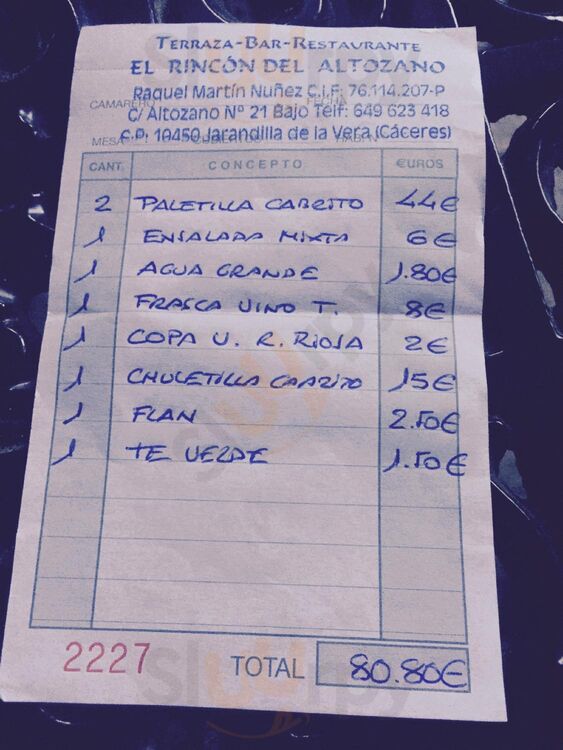 TERRAZA-BAR-RESTAURANTE
EL RINCÓN DEL ALTOZANO
Raquel Martín Nuñez C.I.F: 76.114.207-P
CAMARERO FECHA
C/ Altozano Nº 21 Bajo Telf: 649 623 418
MESA
C.P. 10450 Jarandilla de la Vera (Cáceres)
CANT. CONCEPTO EUROS
2 PALETILLA CABRITO 44€
1 ENSALADA MIXTA 6€
1 AGUA GRANDE 1.80€
1 FRASCA VINO T. 8€
1 COPA V. R. RIOJA 2€
1 CHULETILLA CABRITO 15€
1 FLAN 2.50€
1 TE VERDE 1.50€
2227 TOTAL 80.80€